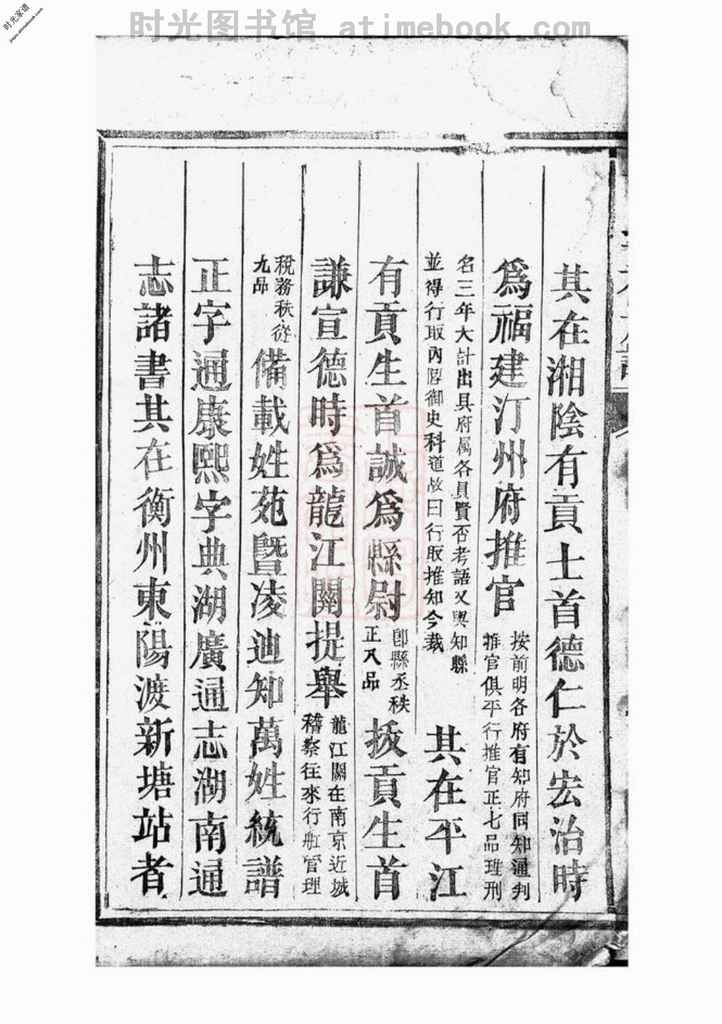 时光图书馆 atimebook.com
时光家谱
其在湘陰有貢士首德仁於宏治時
爲福建汀州府推官
按前明各府有知府同知通判
推官俱平行推官正七品理刑
名三年大計出具府属各員賢否考語又與知縣
並得行取內閣御史科道故曰行取推知今裁
其在平江
有貢生首誠爲縣尉
卽縣丞秩
正八品
拔貢生首
謙宣德時爲龍江關提舉
龍江關在南京近城
稽察往來行船管理
稅務秩從
九品
備載姓苑曁凌迪知萬姓統譜
正字通康熙字典湖廣通志湖南通
志諸書其在衡州東陽渡新塘站者